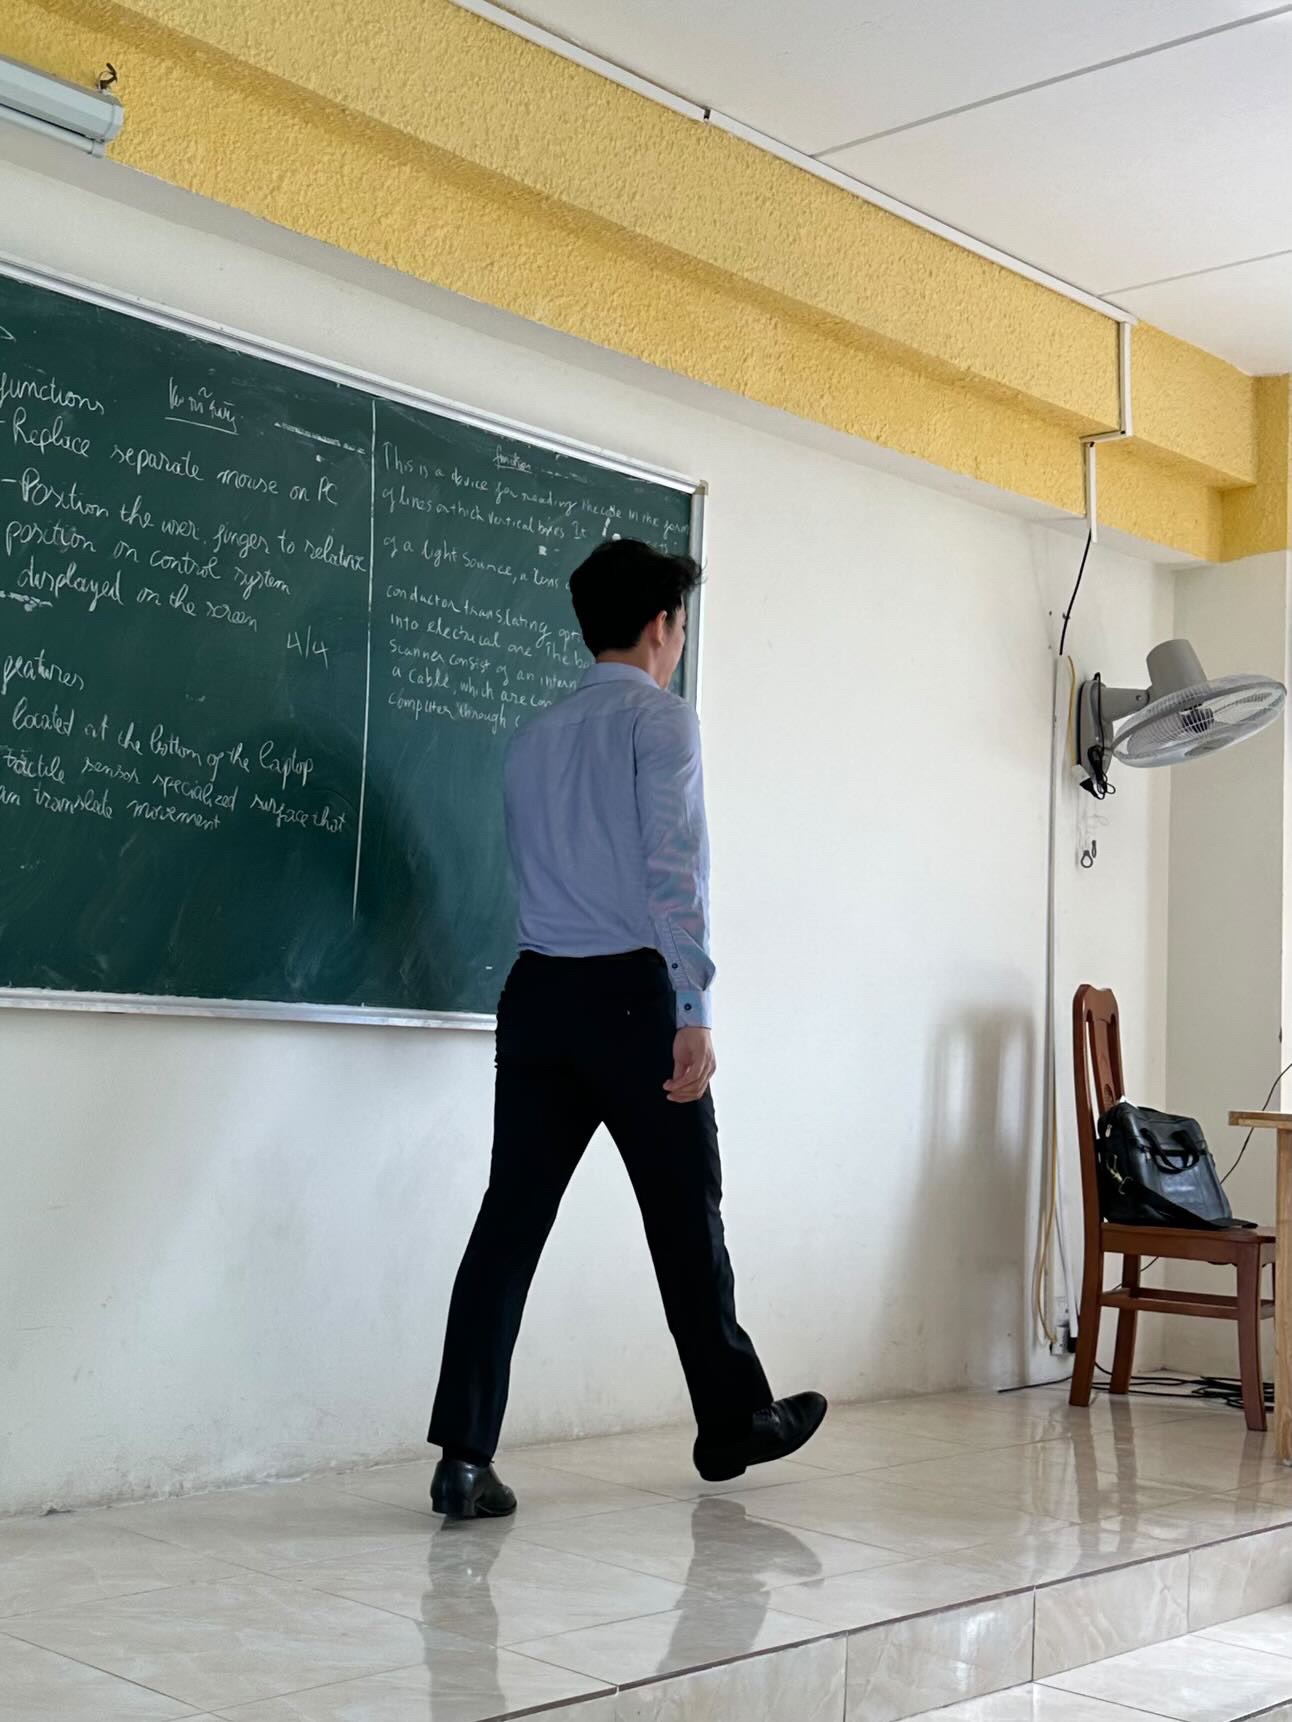 functions
- Replace separate mouse on PC
- Position the user finger to relative
position on control system
displayed on the screen
4/4
features
located at the bottom of the laptop
tactile sensor specialized surface that
an translate movement
function
This is a device for reading the code in the form
of lines or thick vertical It
of a light source, a lens
conductor translating
into electrical one The
scanner consist of an intern
a cable, which are con
computer through